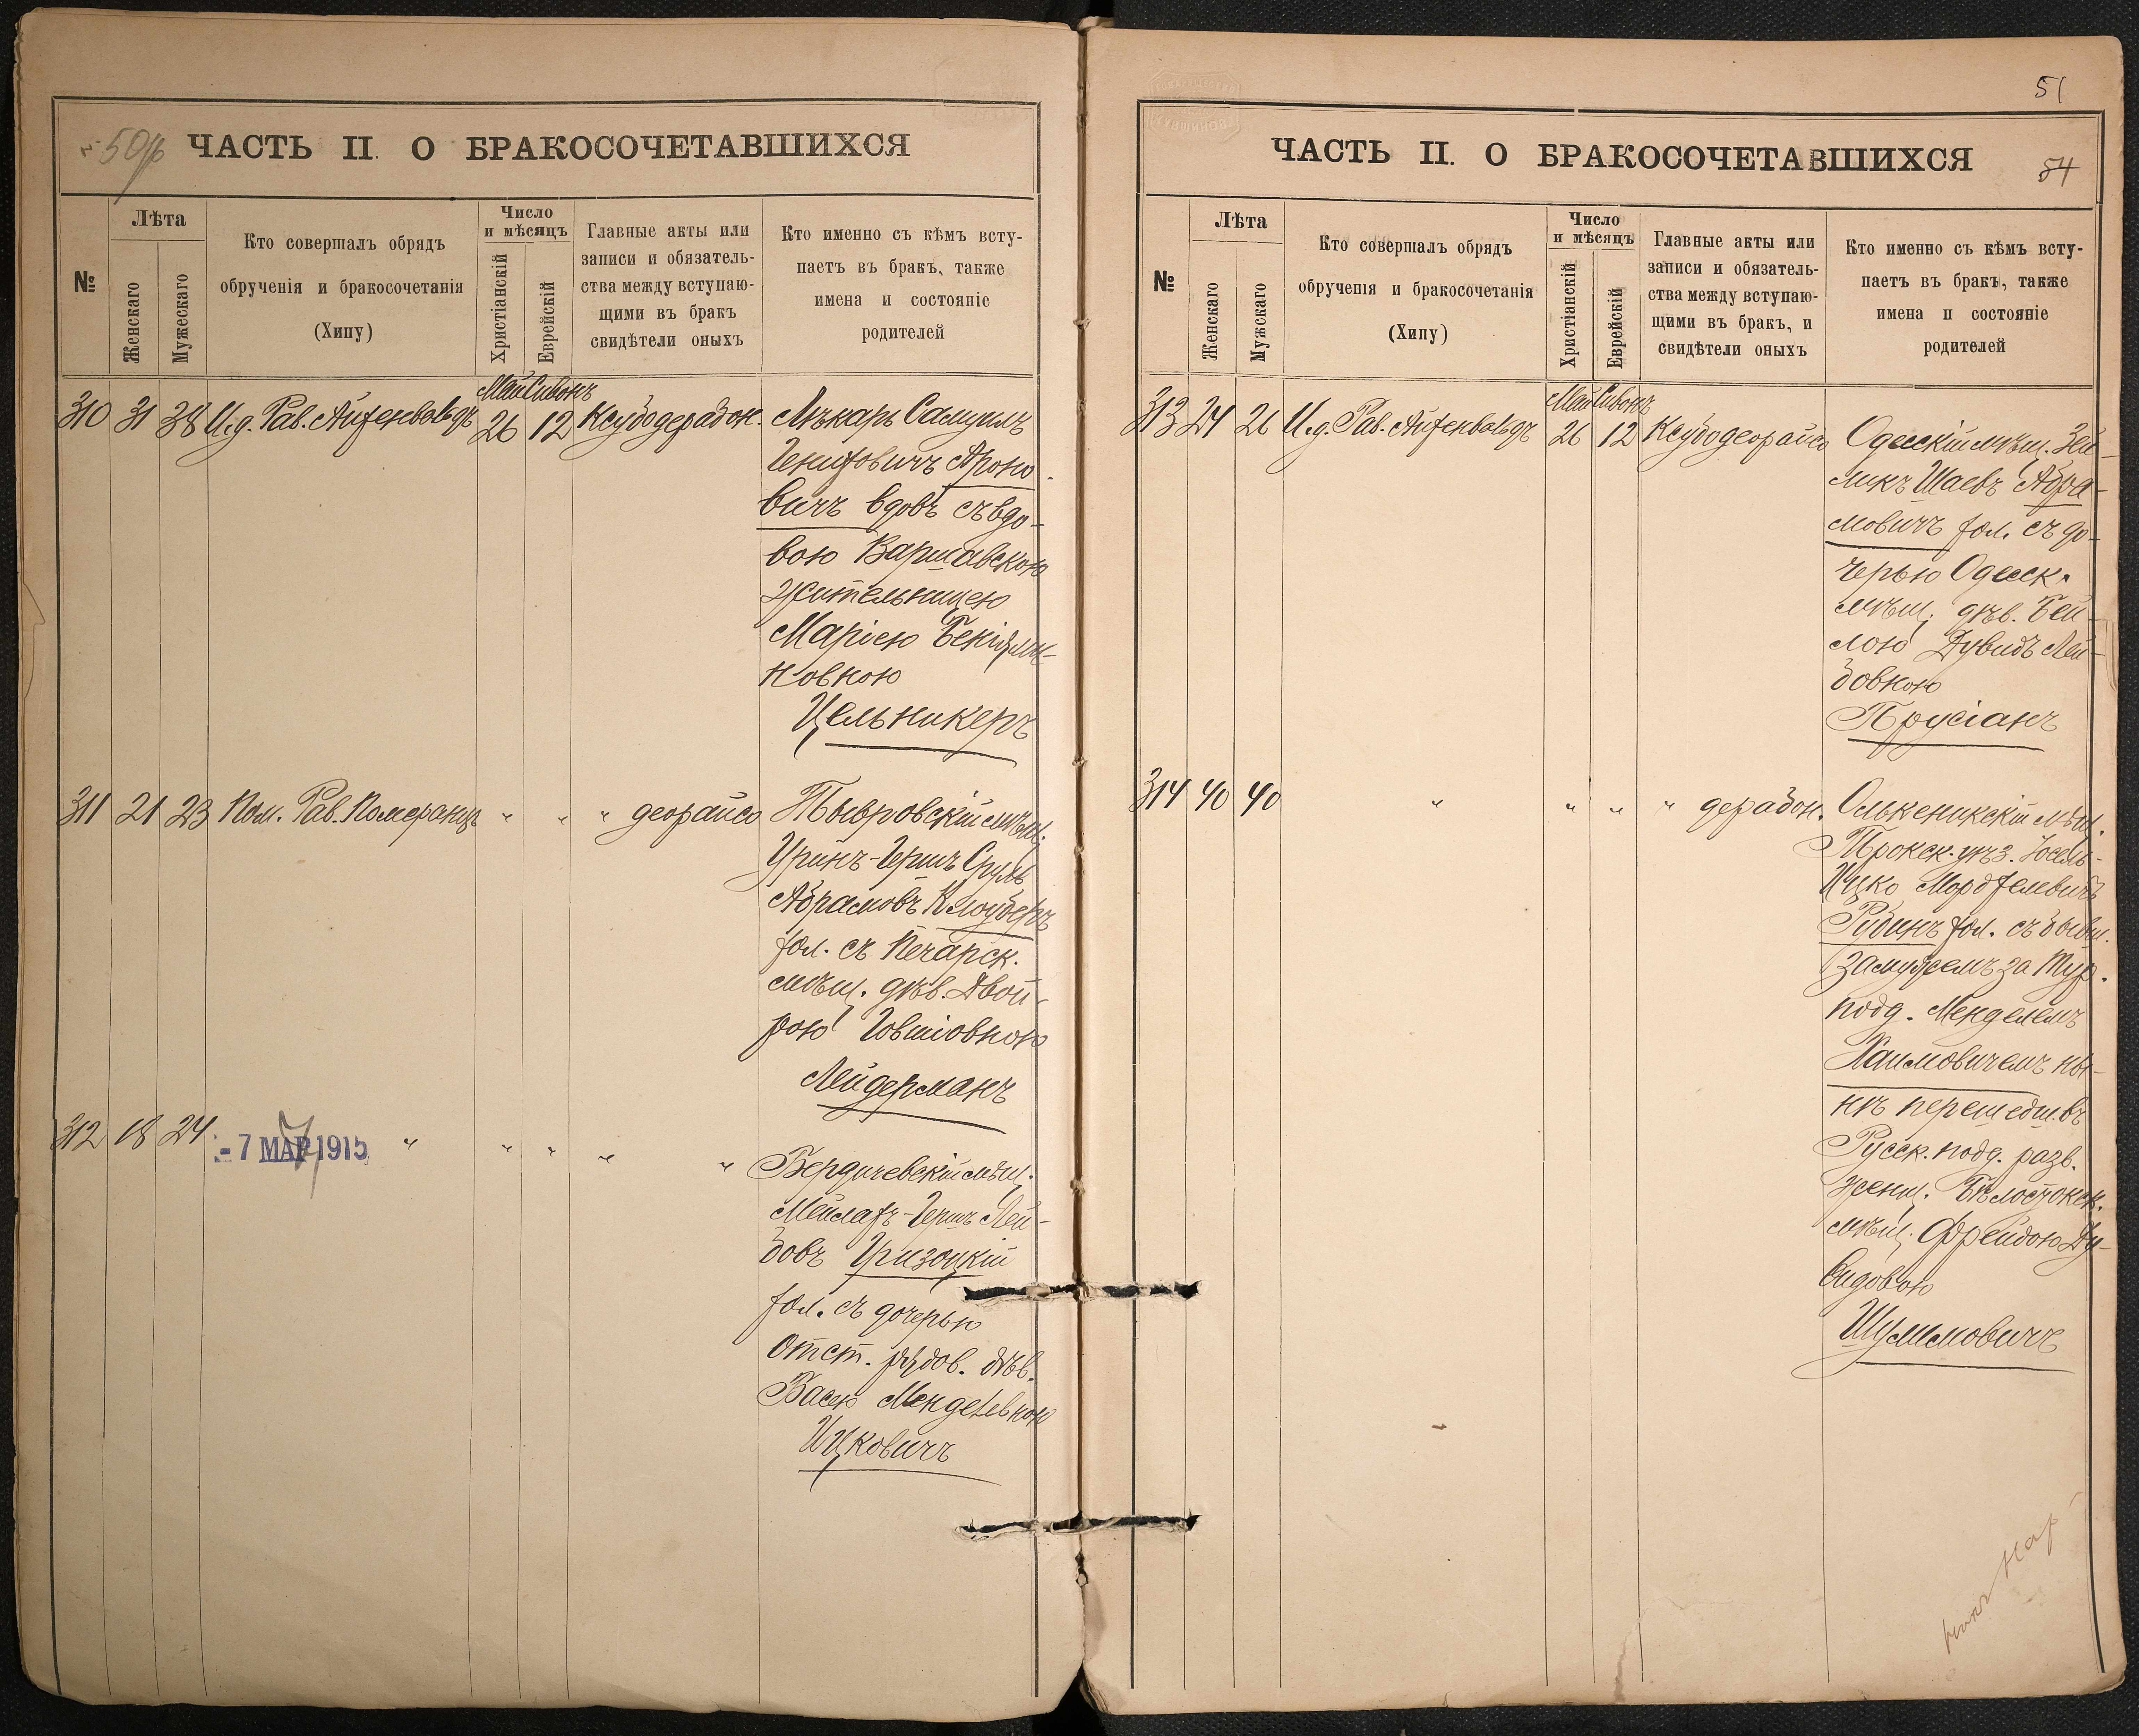 50
ЧАСТЬ II. О БРАКОСОЧЕТАВШИХСЯ
№
Лѣта
Женскаго
Мужескаго
Кто совершалъ обрядъ
обрученія и бракосочетанія
(Хипу)
Число
и мѣсяцъ
Христіанскій
Еврейскій
Главные акты или
записи и обязатель-
ства между вступаю-
щими въ бракъ
свидѣтели оныхъ
Кто именно съ кѣмъ всту-
паетъ въ бракъ, также
имена и состояніе
родителей
Май Сивонъ
310 31 38 И.д. Рав. Айхенвальдъ 26 12 Ксубодерабон. Лѣкарь Самуилъ
Гениховичъ Ароно-
вичъ вдовъ съ вдо-
вою Варшавскою
жительницею
Маріею Беніями-
новною
Цельникеръ
311 21 23 Пом. Рав. Померанцъ " " " деорайсо Тывровскій мѣщ.
Уринъ-Гершъ Сруль
Абрамовъ Клоуберъ
хол. съ Печарск.
мѣщ. дѣв. Двой-
рою Говшіовною
Лейдерманъ
312 18 24 " " " " " Бердичевскій мѣщ.
- 7 МАР 1915
Мейлахъ-Гершъ Лей-
бовъ Гризоцкій
хол. съ дочерью
Отст. рядов. дѣв.
Басею Менделевною
Ицковичъ
51
ЧАСТЬ II. О БРАКОСОЧЕТАВШИХСЯ
54
№
Лѣта
Женскаго
Мужскаго
Кто совершалъ обрядъ
обрученія и бракосочетанія
(Хипу)
Число
и мѣсяцъ
Христіанскій
Еврейскій
Главные акты или
записи и обязатель-
ства между вступаю-
щими въ бракъ, и
свидѣтели оныхъ
Кто именно съ кѣмъ всту-
паетъ въ бракъ, также
имена п состояніе
родителей
Май Сивонъ
313 24 26 И.д. Рав. Айхенвальдъ 26 12 Ксубодеорайсо Одесскій мѣщ. Зей-
ликъ Шаевъ Абра-
мовичъ хол. съ до-
черью Одесск.
мѣщ. дѣв. Бей-
лою Дувидъ Лей-
бовною
Прусіанъ
314 40 40 " " " " дерабон. Олькеникскій мѣщ.
Трокск. уѣз. Іосель-
Ицко Мордхелевичъ
Рубинъ хол. съ бывш.
замужемъ за Тур.
подд. Менделемъ
Хаимовичемъ ны-
нѣ перешедш. въ
Русск. подд. разв.
женщ. Бѣлостокск.
мѣщ. Фрейдою Ду-
видовою
Шулимовичъ